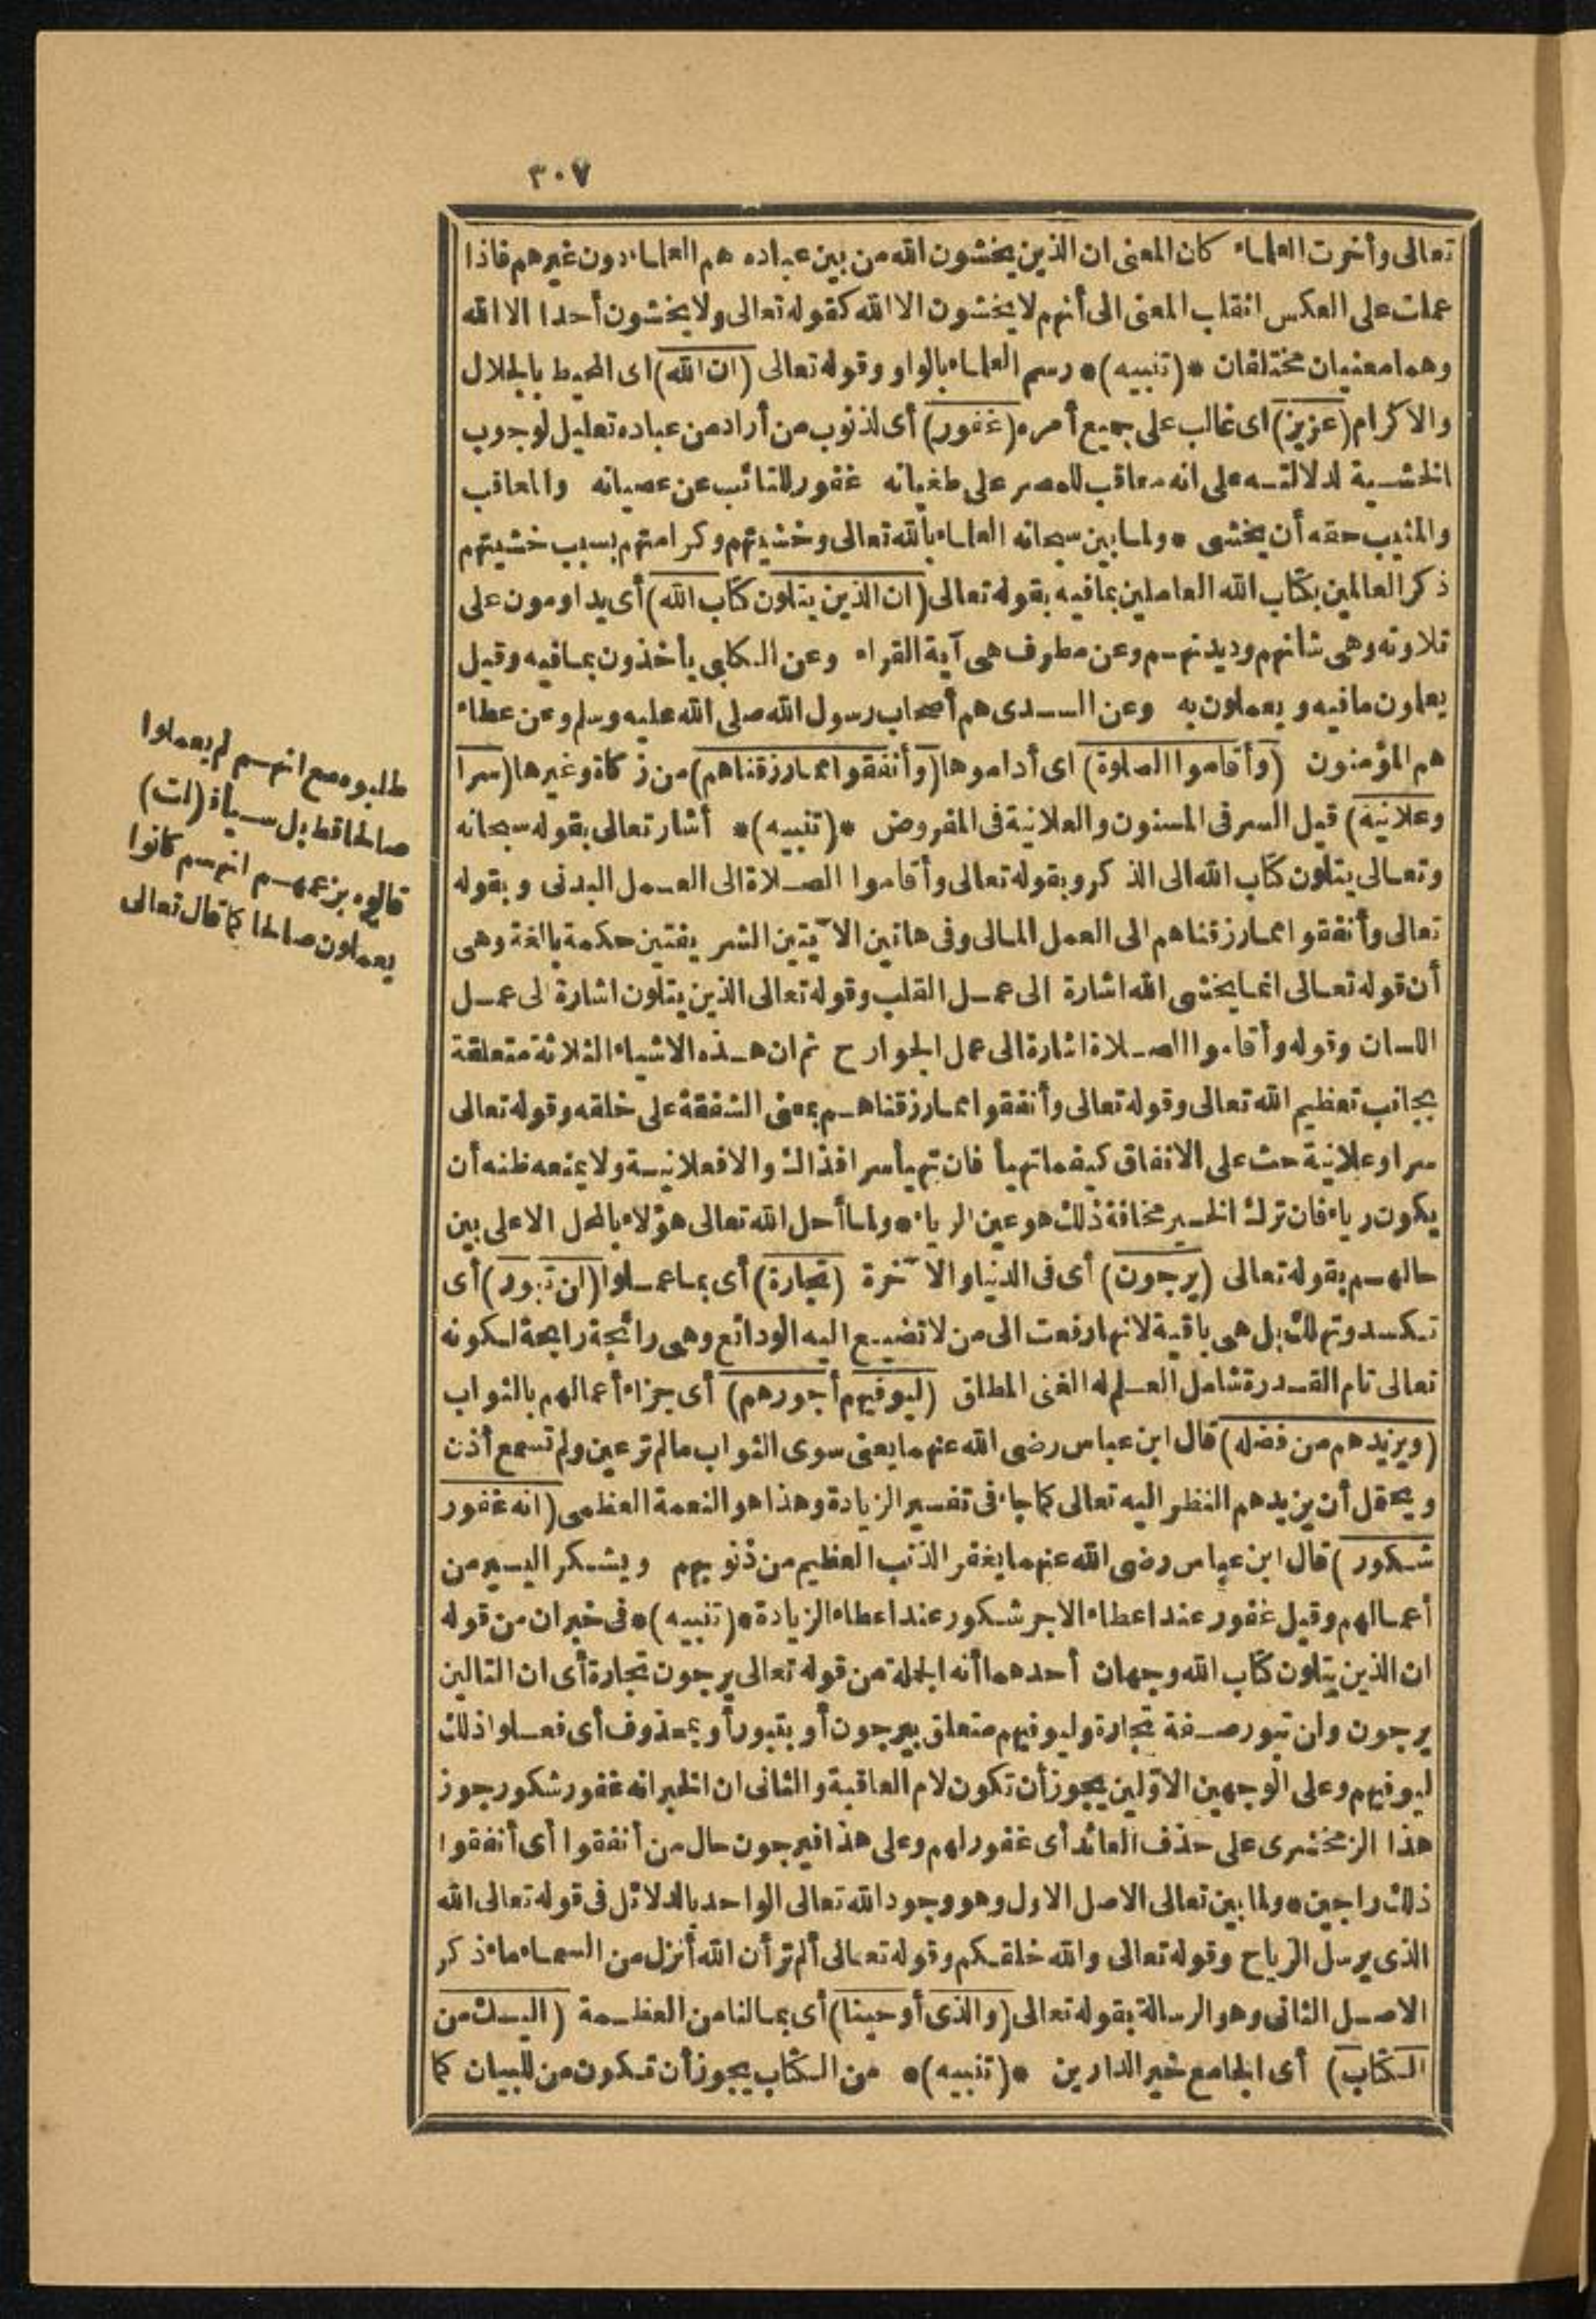 ٣٠٧
تعالى وأخرت العلماء كان المعنى ان الذين يخشون الله من بين عباده هم العلماء دون غيرهم فاذا
عملت على العكس انقلب المعنى الى أنهم لا يخشون الا الله كقوله تعالى ولا يخشون أحدا الا الله
وهما معنيان مختلفان *(تنبيه)* رسم العلماء بالواو وقوله تعالى (ان الله) اى المحيط بالجلال
والاكرام (عزيز) اى غالب على جميع أمره (غفور) أى لذنوب من أراد من عباده تعليل لوجوب
الخشية لدلالته على انه معاقب للمصر على طغيانه غفور للتائب عن عصيانه والمعاقب
والمثيب حقه أن يخشى * ولما بين سبحانه العلماء بالله تعالى وخشيتهم وكرامتهم بسبب خشيتهم
ذكر العالمين بكتاب الله العاملين بما فيه بقوله تعالى (ان الذين يتلون كتاب الله) أى يداومون على
تلاوته وهى شانهم وديدنهم وعن مطرف هى آية القراء وعن الكلبى يأخذون بما فيه وقيل
يعلمون ما فيه و يعملون به وعن السدى هم أصحاب رسول الله صلى الله عليه وسلم وعن عطاء
هم المؤمنون (وأقاموا الصلوة) اى أداموها (وأنفقوا مما رزقناهم) من زكاة وغيرها (سرا
وعلانية) قيل السر فى المسنون والعلانية فى المفروض *(تنبيه)* أشار تعالى بقوله سبحانه
وتعالى يتلون كتاب الله الى الذكر و بقوله تعالى وأقاموا الصلاة الى العمل البدنى و بقوله
تعالى وأنفقوا مما رزقناهم الى العمل المالى وفى هاتين الآيتين الشريفتين حكمة بالغة وهى
أن قوله تعالى انما يخشى الله اشارة الى عمل القلب وقوله تعالى الذين يتلون اشارة الى عمل
اللسان وقوله وأقاموا الصلاة اشارة الى عمل الجوارح ثم ان هذه الاشياء الثلاثة متعلقة
بجانب تعظيم الله تعالى وقوله تعالى وأنفقوا مما رزقناهم بمعنى الشفقة على خلقه وقوله تعالى
سرا وعلانية حث على الانفاق كيفما تهيأ فان تهيأ سرا فذاك والا فعلانية ولا يمنعه ظنه أن
يكون رياء فان ترك الخير مخافة ذلك هو عين الرياء * ولما أحل الله تعالى هؤلاء بالمحل الاعلى بين
حالهم بقوله تعالى (يرجون) أى فى الدنيا والآخرة (تجارة) أى بما عملوا (لن تبور) أى
تكسد وتهلك بل هى باقية لانها رفعت الى من لا تضيع اليه الودائع وهى رائجة رابحة لكونه
تعالى تام القدرة شامل العلم له الغنى المطلق (ليوفيهم أجورهم) أى جزاء أعمالهم بالثواب
(ويزيدهم من فضله) قال ابن عباس رضى الله عنهما يعنى سوى الثواب مالم تر عين ولم تسمع أذن
ويحتمل أن يزيدهم النظر اليه تعالى كما جاء فى تفسير الزيادة وهذا هو النعمة العظمى (انه غفور
شكور) قال ابن عباس رضى الله عنهما يغفر الذنب العظيم من ذنوبهم ويشكر اليسير من
أعمالهم وقيل غفور عند اعطاء الاجر شكور عند اعطاء الزيادة *(تنبيه)* فى خبر ان من قوله
ان الذين يتلون كتاب الله وجهان أحدهما أنه الجملة من قوله تعالى يرجون تجارة أى ان التالين
يرجون ولن تبور صفة تجارة وليوفيهم متعلق بيرجون أو بتبور أو بمحذوف أى فعلوا ذلك
ليوفيهم وعلى الوجهين الاولين يجوز أن تكون لام العاقبة والثانى ان الخبر انه غفور شكور جوز
هذا الزمخشرى على حذف العائد أى غفور لهم وعلى هذا فيرجون حال من أنفقوا أى أنفقوا
ذلك راجين * ولما بين تعالى الاصل الاول وهو وجود الله تعالى الواحد بالدلائل فى قوله تعالى الله
الذى يرسل الرياح وقوله تعالى والله خلقكم وقوله تعالى ألم تر أن الله أنزل من السماء ماء ذكر
الاصل الثانى وهو الرسالة بقوله تعالى (والذى أوحينا) أى بمالنا من العظمة (اليك من
الكتاب) أى الجامع خير الدارين *(تنبيه)* من الكتاب يجوز أن تكون من للبيان كما
طلبوه مع انهم لم يعملوا
صالحا قط بل سيأة (لت)
قالوه بزعمهم انهم كانوا
يعملون صالحا كما قال تعالى